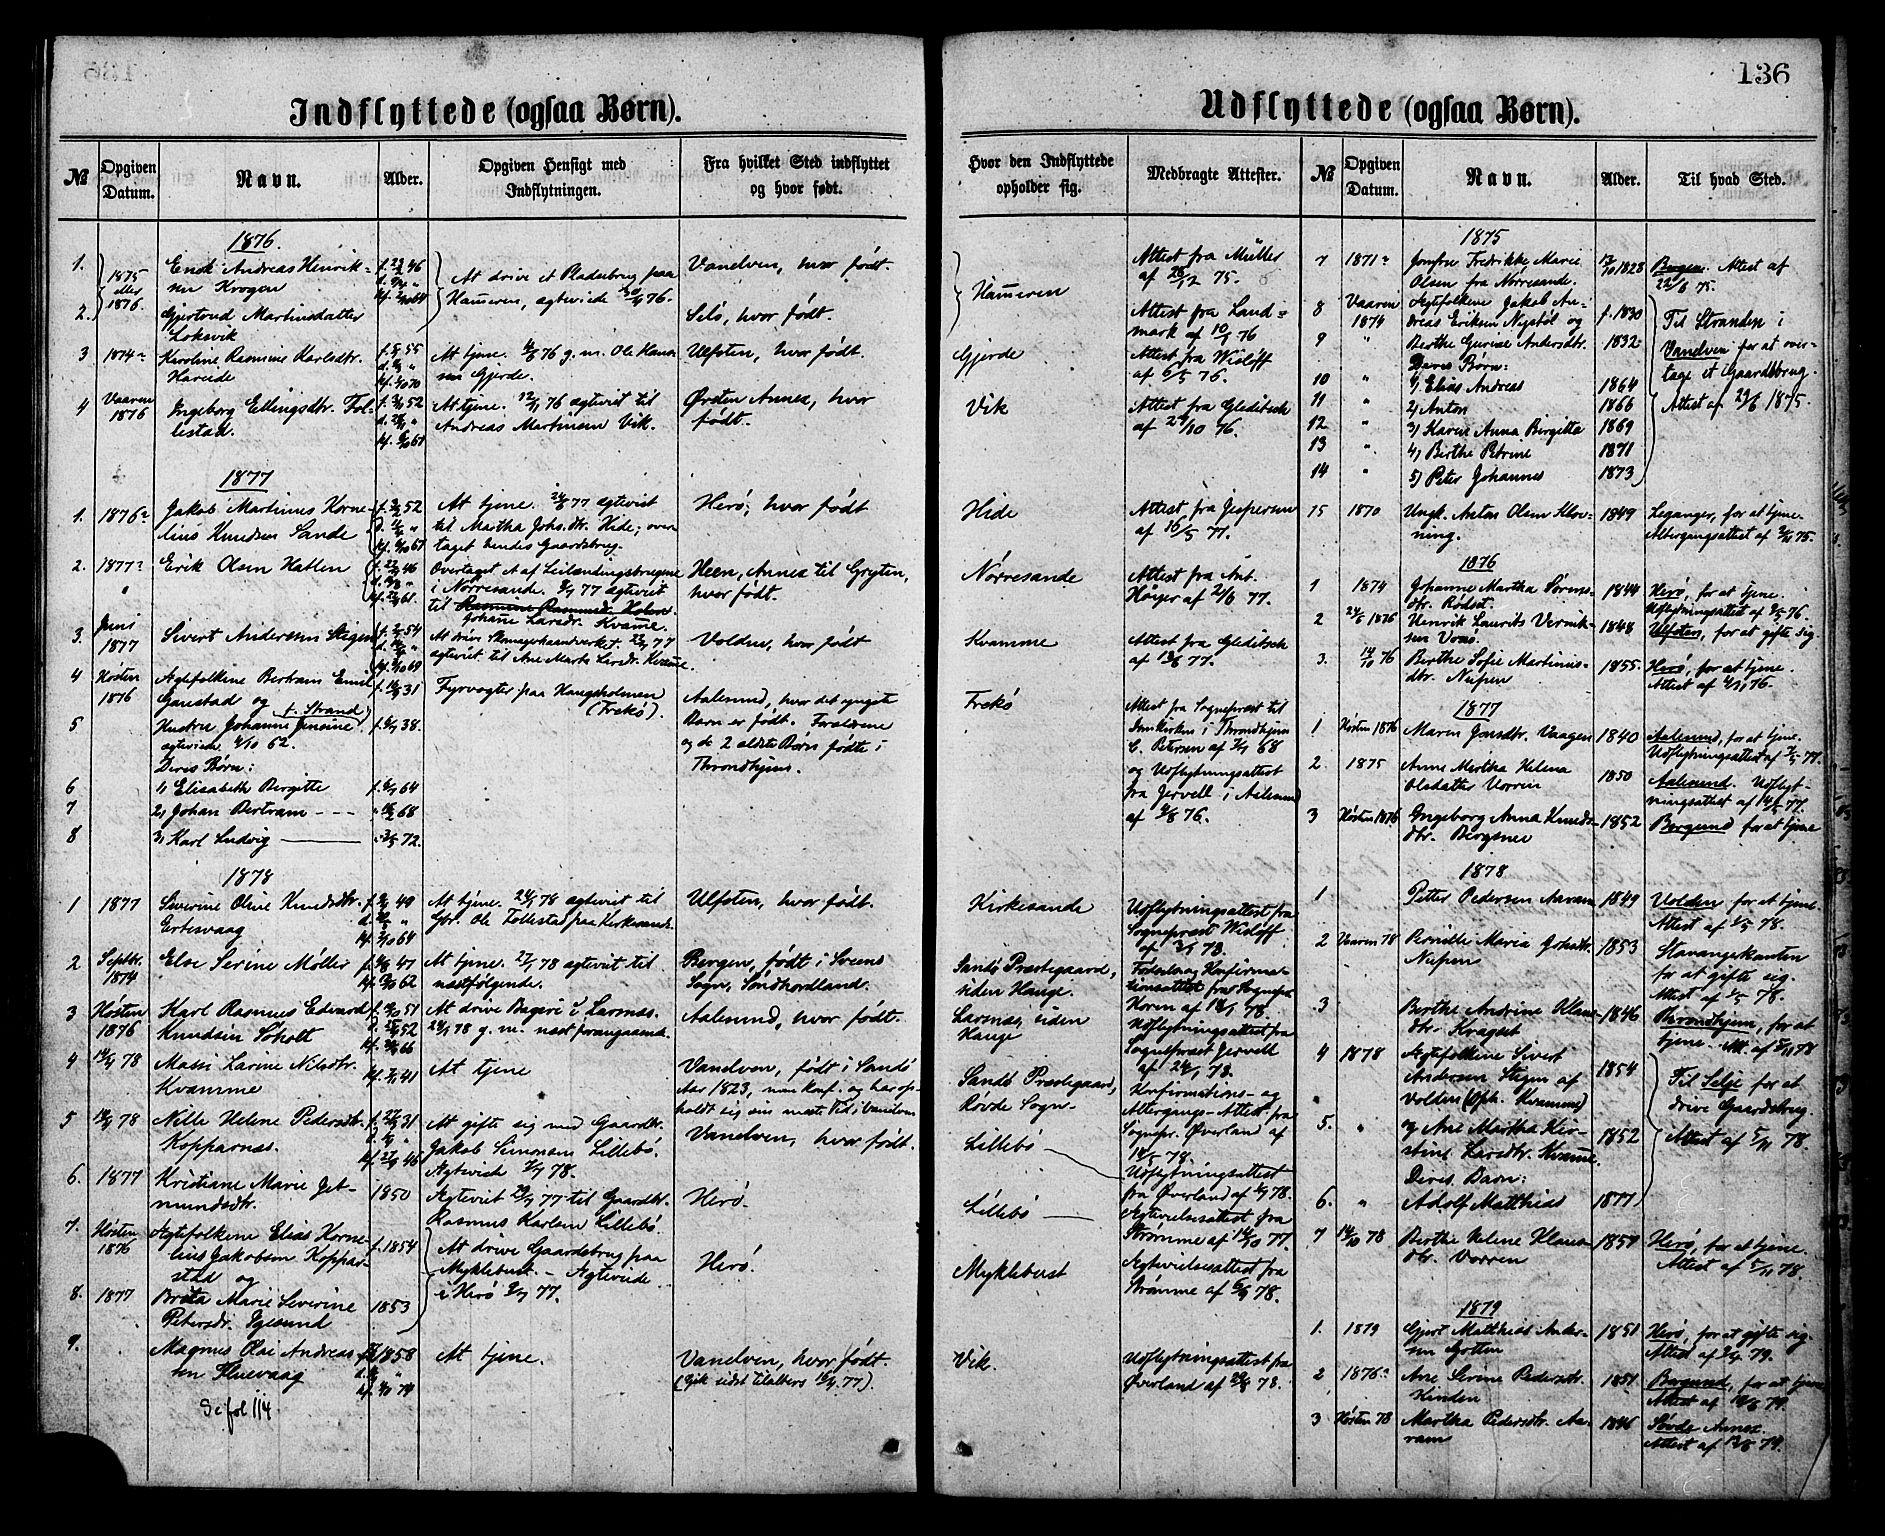 136
Indflyttede (ogsaa Børn).
Udflyttede (ogsaa Børn).
№
Opgiven Datum.
Navn.
Alder.
Opgiven Hensigt med Indflytningen.
Fra hvilket Sted indflyttet og hvor født.
Hvor den Indflyttede opholder sig.
Medbragte Attester.
№
Opgiven Datum.
Navn.
Alder.
Til hvad Sted.
1876.
1. 1875 eller 1876.
Erik Andreas Henrik-
sen Krogen
At drive et Pladsbrug paa
Vanelven, hvor født.
Hauseren
Attest fra Müller
2. Gjertrud Martinsdatter
Selø, hvor født.
Attest fra Land-
mark af 10/1 76
3 1874 Karoline Rasmine Karlsdtr.
Hareide
At tjene. g. m. Ole Hansen Gjerde.
Ulfsten, hvor født.
Gjerde
Attest fra Wisløff
af 6/5 76.
4 Vaaren 1876
Ingeborg Ellingsdtr. Fol-
lestad.
At tjene. 12/11 76 egteviet til
Andreas Martinsen Vik.
Ørsten Annex, hvor
født.
Vik
Attest fra Gleditsch
af 27/10 76.
1877
1. 1876
Jakob Martinus Korne-
lius Knudsen Sande
At tjene. 24/6 77 egteviet
til Martha Johs.dtr. Hide; over
taget hendes Gaardsbrug.
Herø, hvor født
Hide
Attest fra Jespersen
af 16/5 77.
2. 1877
Erik Olsen Hatlen
Overtaget et af Leilændingsbrugene
i Nørresande. egteviet
til
Johane Larsdr. Kvamme.
Heen, Annex til Gryten,
hvor født.
Nørresande
Attest fra Ant.
77.
3. Juni 1877
Sivert Andersen Stigen
At drive Skomagerhaandverket.
egteviet til Ane Marta Larsdtr. Kvamme.
Volden, hvor født
Kvamme
Attest fra Gleditsch
af 13/6 77.
4 Høsten 1876
Egtefolkene Bertram Emil
Garstad og
f. Strand
5 Hustru Johanne Jensine
f. 38.
egteviede 4/10 62.
Deres Børn:
Fyrvogter paa Haugsholmen
(Frekø).
Aalesund, hvor det yngste
Barn er født. Forældrene
og de 2 ældste Børn fødte i
Throndhjem.
Frekø
Attest fra Sognepræst til
Domkirken i Throndhjem
C. Petersen af 68
og Udflytningsattest
fra Jervell i Aalesund
6 1, Elisabeth Birgitte 64
7 2, Johan Bertram 68
8 3, Karl Ludvig 72.
1878
1 1877
Severine Oline Knudsdtr.
Ertesvaag
At tjene. 24/1 78 egteviet til
Gbr. Ole Follestad paa Kirkesande.
Ulfsten, hvor født.
Kirkesande
Udflytningsattest fra
Sognepræst Wisløff
2 Septbr. 1874
Else Serine Møller
At tjene. 27/1 78 egteviet til
næstfølgende.
Bergen, født i Sveens
Sogn, Søndhordland.
Sands Præstegaard,
siden Hauge.
3 Høsten 1876
Karl Rasmus Edvard
Knudsen Soholt
At drive Bageri i Larsnes.
g. m. næst foregaaende.
Aalesund, hvor født.
Larsnes, siden
Hauge
Udflytningsattest fra
Sognepræst Jervell
af 24/1 78.
4 78
Massi Larine Nilsdtr.
Kvamme
At tjene
Vanelven, født i Sands
Aar 1823, men konf. og har op-
holdt sig sin meste Tid i Vanelven
Sands Præstegaard,
Røvde Sogn.
Konfirmations- og
Altergangs-Attest fra
Sognepr. Øverland af
5 78
Nille Helene Pedersdtr.
Kopparnæs.
At gifte sig med Gaardbr.
Jakob Simonsen Lillebø.
Egteviede 78.
Vanelven, hvor født.
Lillebø
Udflytningsattest
fra Øverland af 78.
6. 1877
Kristiane Marie Jet-
mundsdtr.
1850
Egteviet 77 til Gaardbr.
Rasmus Karlsen Lillebø.
Herø.
Lillebø
Egtevielsesattest fra
Strømme af 77.
7. Høsten 1876
Egtefolkene Elias Korne-
lius Jakobsen Koppar-
stad og
f. 1854
At drive Gaardsbrug paa
Myklebust. - Egteviede
i Herø 77.
Herø.
Myklebust
Egtevielsesattest fra
Strømme af 78.
8. 1877
Brita Marie Severine
Petersdr. Igesund
1853
9. Magnus Olai Andreas-
sen Fluevaag
1858
At tjene.
Vanelven, hvor født.
(Gik sidst tilalters 77).
Vik.
Udflytningsattest fra
Øverland af 78.
Se fol 114
1875
7 1871
Jomfru Fredrikke Marie
Olsen fra Nørresande.
1828
Bergen. Attest af
75.
8 Vaaren 1874
Egtefolkene Jakob An-
dreas Eriksen Nystøl og
f. 1830
9 " Berthe Gurine Andersdtr.
1832
Deres Børn:
Til Stranden i
Vanelven for at over-
tage et Gaardsbrug.
Attest af 29/6 1875.
10 " 1, Elias Andreas 1864
11 " 2, Anton 1866
12 " 3, Karen Anna Birgitta 1869
13 " 4, Birthe Petrine 1871
14 " 5, Peter Johannes 1873
15 1870
Ungk. Anton Olsen Klov-
ning.
1849
Leganger, for at tjene.
1876
1 1874
Johanne Martha Sørens-
dtr. Rødset.
1844
Herø, for at tjene.
Udflytningsattest af 76.
2 24/5 1876
Henrik Laurits Vernik-
sen Voxø.
1848
Ulfsten, for at gifte sig
3. 76
Berthe Sofie Martinus-
dtr. Nupen
1855
Herø, for at tjene.
Attest af 76.
1877
1 Høsten 1876
Maren Jonsdtr. Vaagen
1840
Aalesund, for at tjene.
Udflytningsattest af 77.
2. 1875
Anne Martha Helena
Olsdatter Vorren
1850
Aalesund. Udflyt-
ningsattest af 77.
3 Høsten 1876
Ingeborg Anna Knuds-
dtr. Bergsnes
1852
Borgund for at tjene
1878
1 Petter Pedersen Aaram
1849
Volden for at tjene.
Attest af 78.
2 Vaaren 78
Pernille Maria Johsdtr.
Nupen
1853
Stavangerkanten
for at gifte sig.
Attest af 78.
3 Berthe Andrine Klaus-
dtr. Kragset
1846
Throndhjem, for at
tjene. Att. af 78
4 1878
Egtefolkene Sivert
Andersen Stigen af
Volden (Oph. Kvamme)
1854
Til Selje for at
drive Gaardsbrug.
Attest af 5/11 78.
5. " og Ane Martha Kir-
stine Larsdtr. Kvamme.
1852
Deres Barn:
6. " Adolf Matthias 1877
7 14/10 78
Berthe Helene Klaus-
dtr. Vorren
1857
Herø, for at tjene.
Attest af 5/11 78.
1879
1. 1879
Gjert Matthias Ander-
sen Gotten
1851
Herø, for at gifte sig
Attest af 79.
2 1876
Ane Serine Pedersdtr.
Hinden
1851
Borgund, for at tjene
Attest af 79.
3 Høsten 78
Martha Pedersdtr. Aa-
ram
1846
Søvde Annex.
Attest af 79.